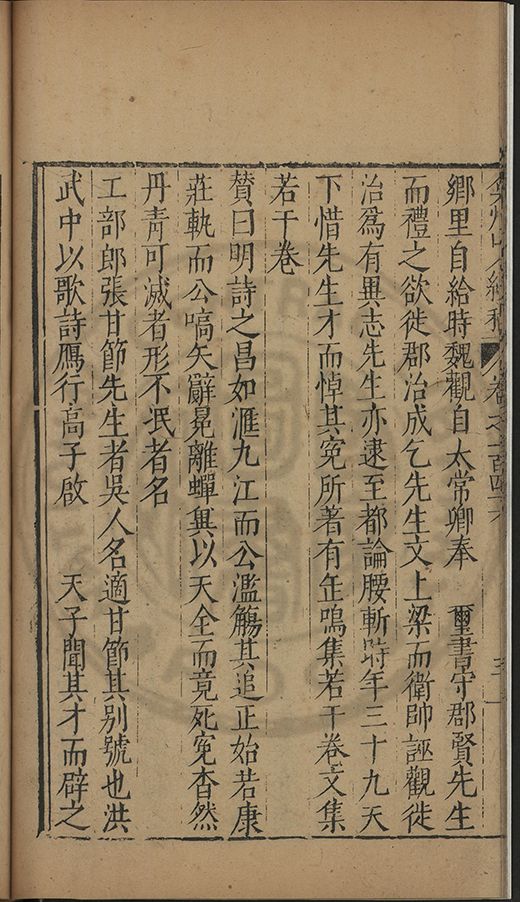 弇州山人續稿 卷之一百四十六
鄉里自給時魏觀自太常卿奉 璽書守郡賢先生
而禮之欲徙郡治成乞先生文上梁而衛帥誣觀徙
治爲有異志先生亦逮至都論腰斬時年三十九天
下惜先生才而悼其寃所著有缶鳴集若干卷文集
若干卷
贊曰明詩之昌如滙九江而公濫觴其追正始若康
莊軌而公嚆矢辭冕離蟬與以天全而竟死寃杳然
丹青可滅者形不泯者名
工部郎張甘節先生者吳人名適甘節其别號也洪
武中以歌詩鴈行高子啟 天子聞其才而辟之